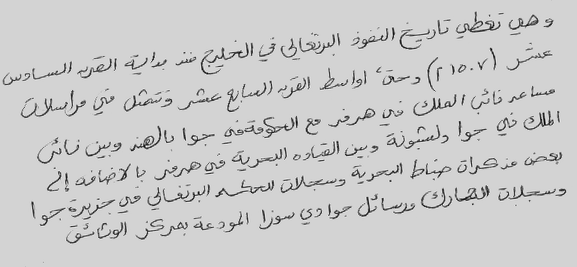 وهي تغطي تاريخ النفوذ البرتغالي في الخليج منذ بداية القرن السادس
عشر (١٥٠٧م) وحتى اواسط القرن السابع عشر وتتمثل في مراسلات
مساعد نائب الملك في هرمز مع الحكومة في جوا بالهند وبين نائب
الملك في جوا ولشبونة وبين القياده البحرية في هرمز بالاضافه إلى
بعض مذكرات ضباط البحرية وسجلات للحكم البرتغالي في جزيرة جوا
وسجلات الجمارك ورسائل جوا دي سوزا المودعة بمركز الوثائق